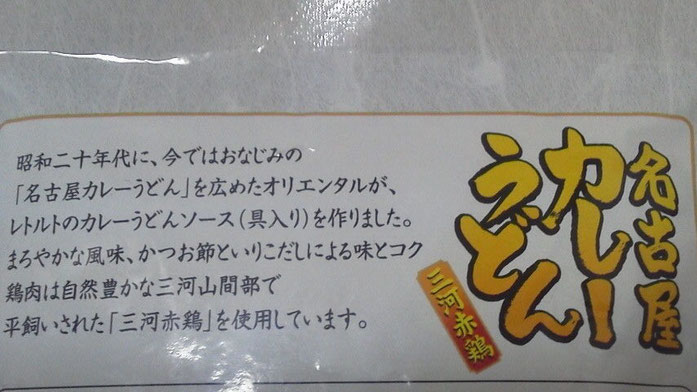 名古屋
カレー
うどん
三河赤鶏
昭和二十年代に、今ではおなじみの
「名古屋カレーうどん」を広めたオリエンタルが、
レトルトのカレーうどんソース(具入り)を作りました。
まろやかな風味、かつお節といりこだしによる味とコク
鶏肉は自然豊かな三河山間部で
平飼いされた「三河赤鶏」を使用しています。